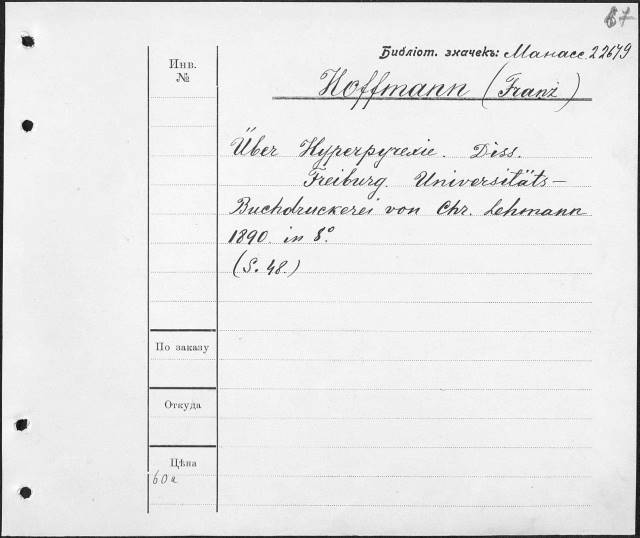 67
Библіот. значекъ: Манасс. 22679
Инв.
№
Hoffmann (Franz)
Über Hyperpyrexie. Diss.
Freiburg. Universitäts-
Buchdruckerei von Chr. Lehmann
1890. in 8.°
(S. 48.)
По заказу
Откуда
Цѣна
60